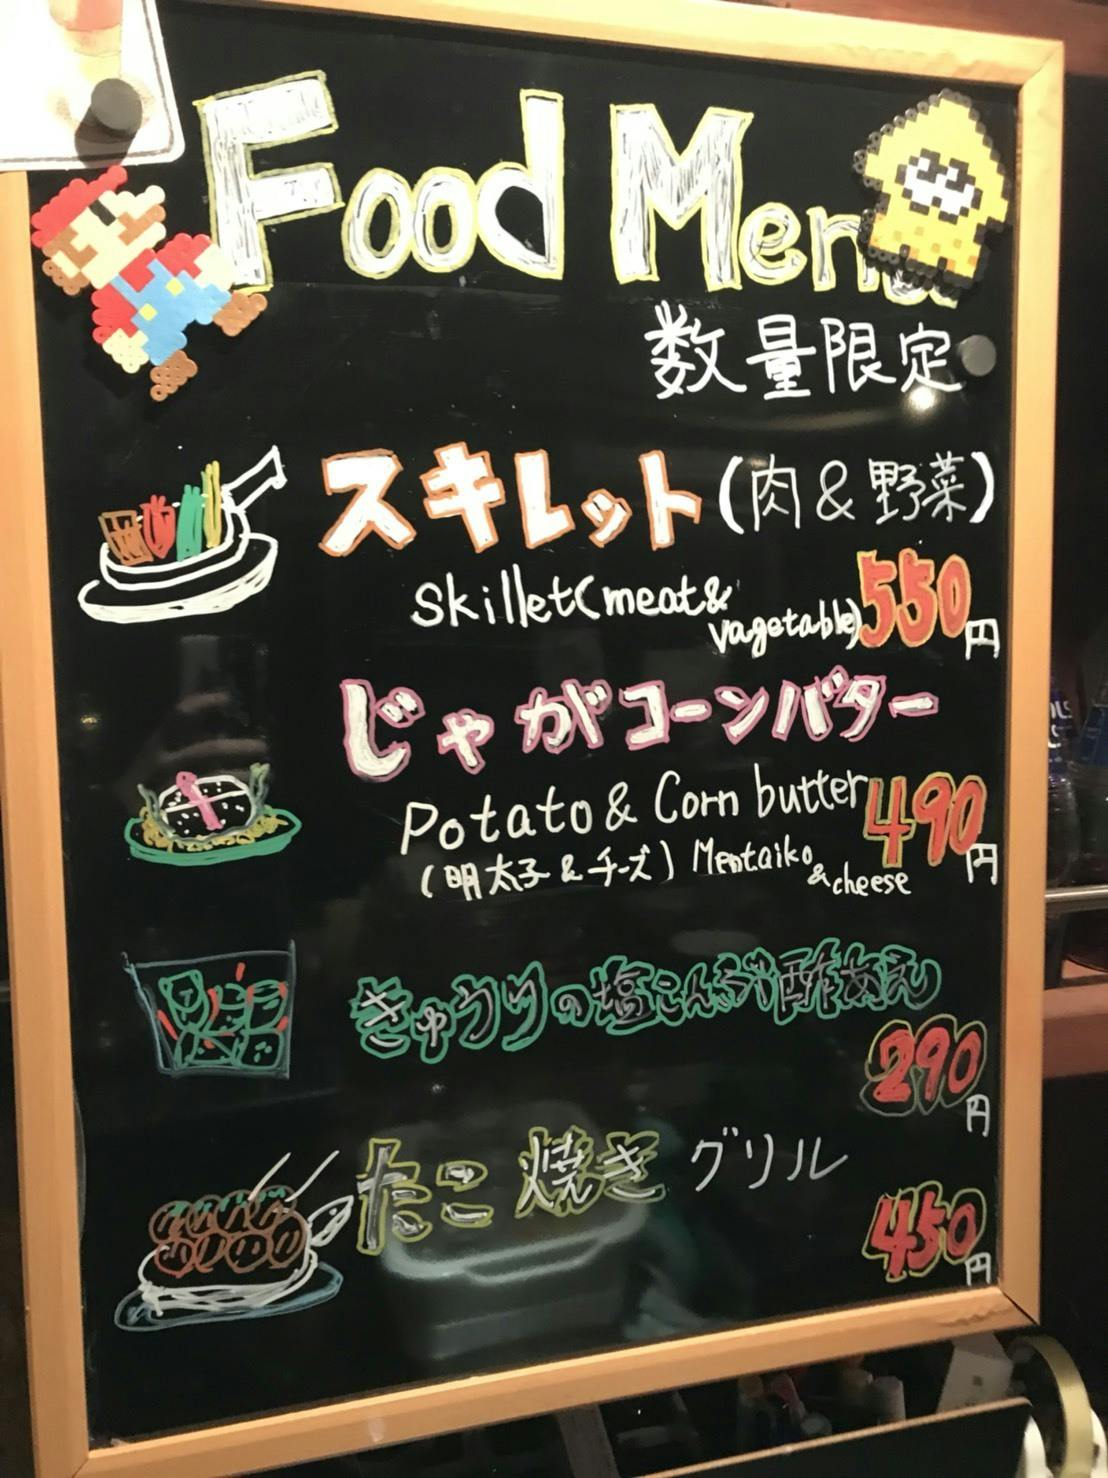 Food Menu
数量限定
スキレット(肉&野菜)
skillet(meat&
vagetable) 550円
じゃがコーンバター
Potato & Corn butter 490円
(明太子&チーズ) Mentaiko
& cheese
きゅうりの塩こんぶ酢あえ
290円
たこ焼きグリル
450円